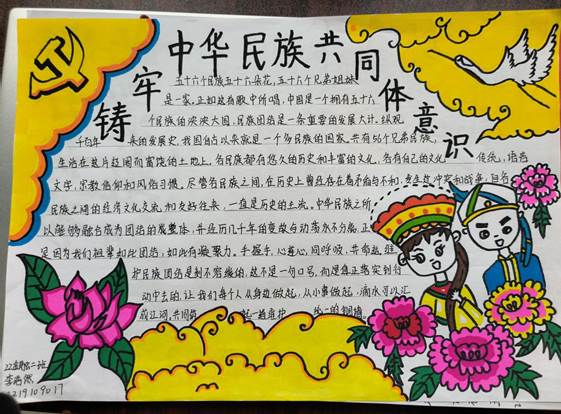 铸牢中华民族共同体意识
五十六个民族五十六朵花，五十六个兄弟姐妹
是一家，正如这首歌中所唱，中国是一个拥有五十六
个民族的泱泱大国，民族团结是一条重要的发展大计。纵观
千百年来的发展史，我国自古以来就是一个多民族的国家。共有56个兄弟民族
生活在这片辽阔而富饶的土地上，各民族都有悠久的历史和丰富的文化，各有自己的文化传统，语言
文字，宗教信仰和风俗习惯。尽管各民族之间，在历史上曾经存在着不和与不和，发生过冲突和战争，但各
民族之间的经济文化交流，和友好往来，一直是历史的主流。中华民族之所
以能够融合成为团结的
并经历几十年的变故与动荡永不分离，正
是因为我们祖辈如此团结，如此有凝聚力。手握手，心连心，同呼吸，共命运，维
护民族团结是刻不容缓的，这不是一句口号，而是真正落实到行
动中去的，让我们每个人从身边做起，从小事做起，滴水可以汇
成江河。共同
一起维护
统一的
22
二班
2219109017